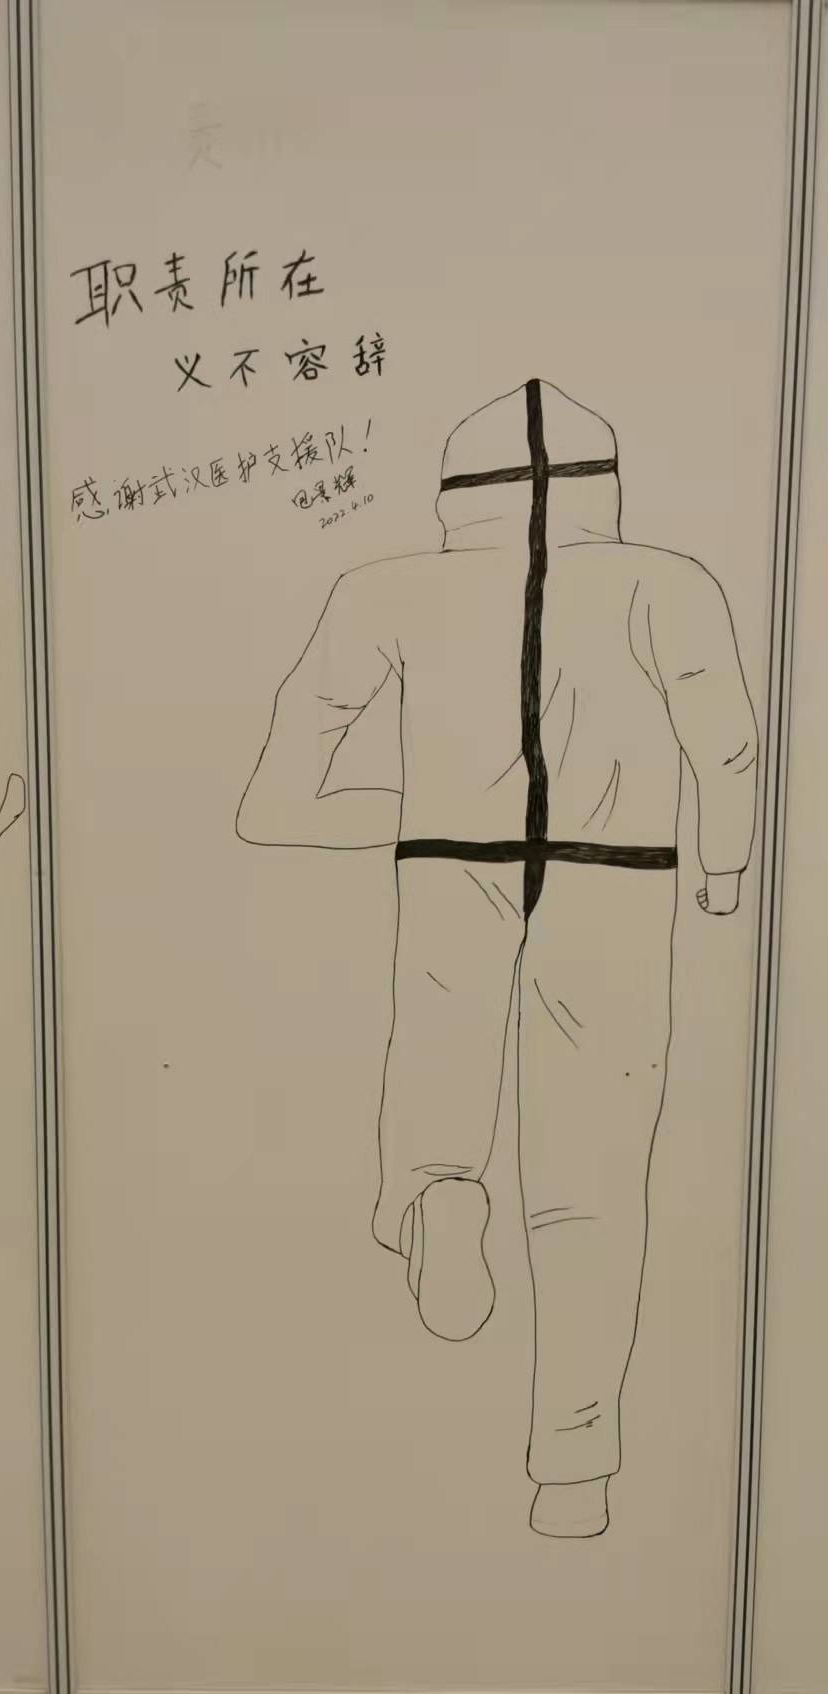 职责所在
义不容辞
感谢武汉医护支援队！
景辉
2022.4.10